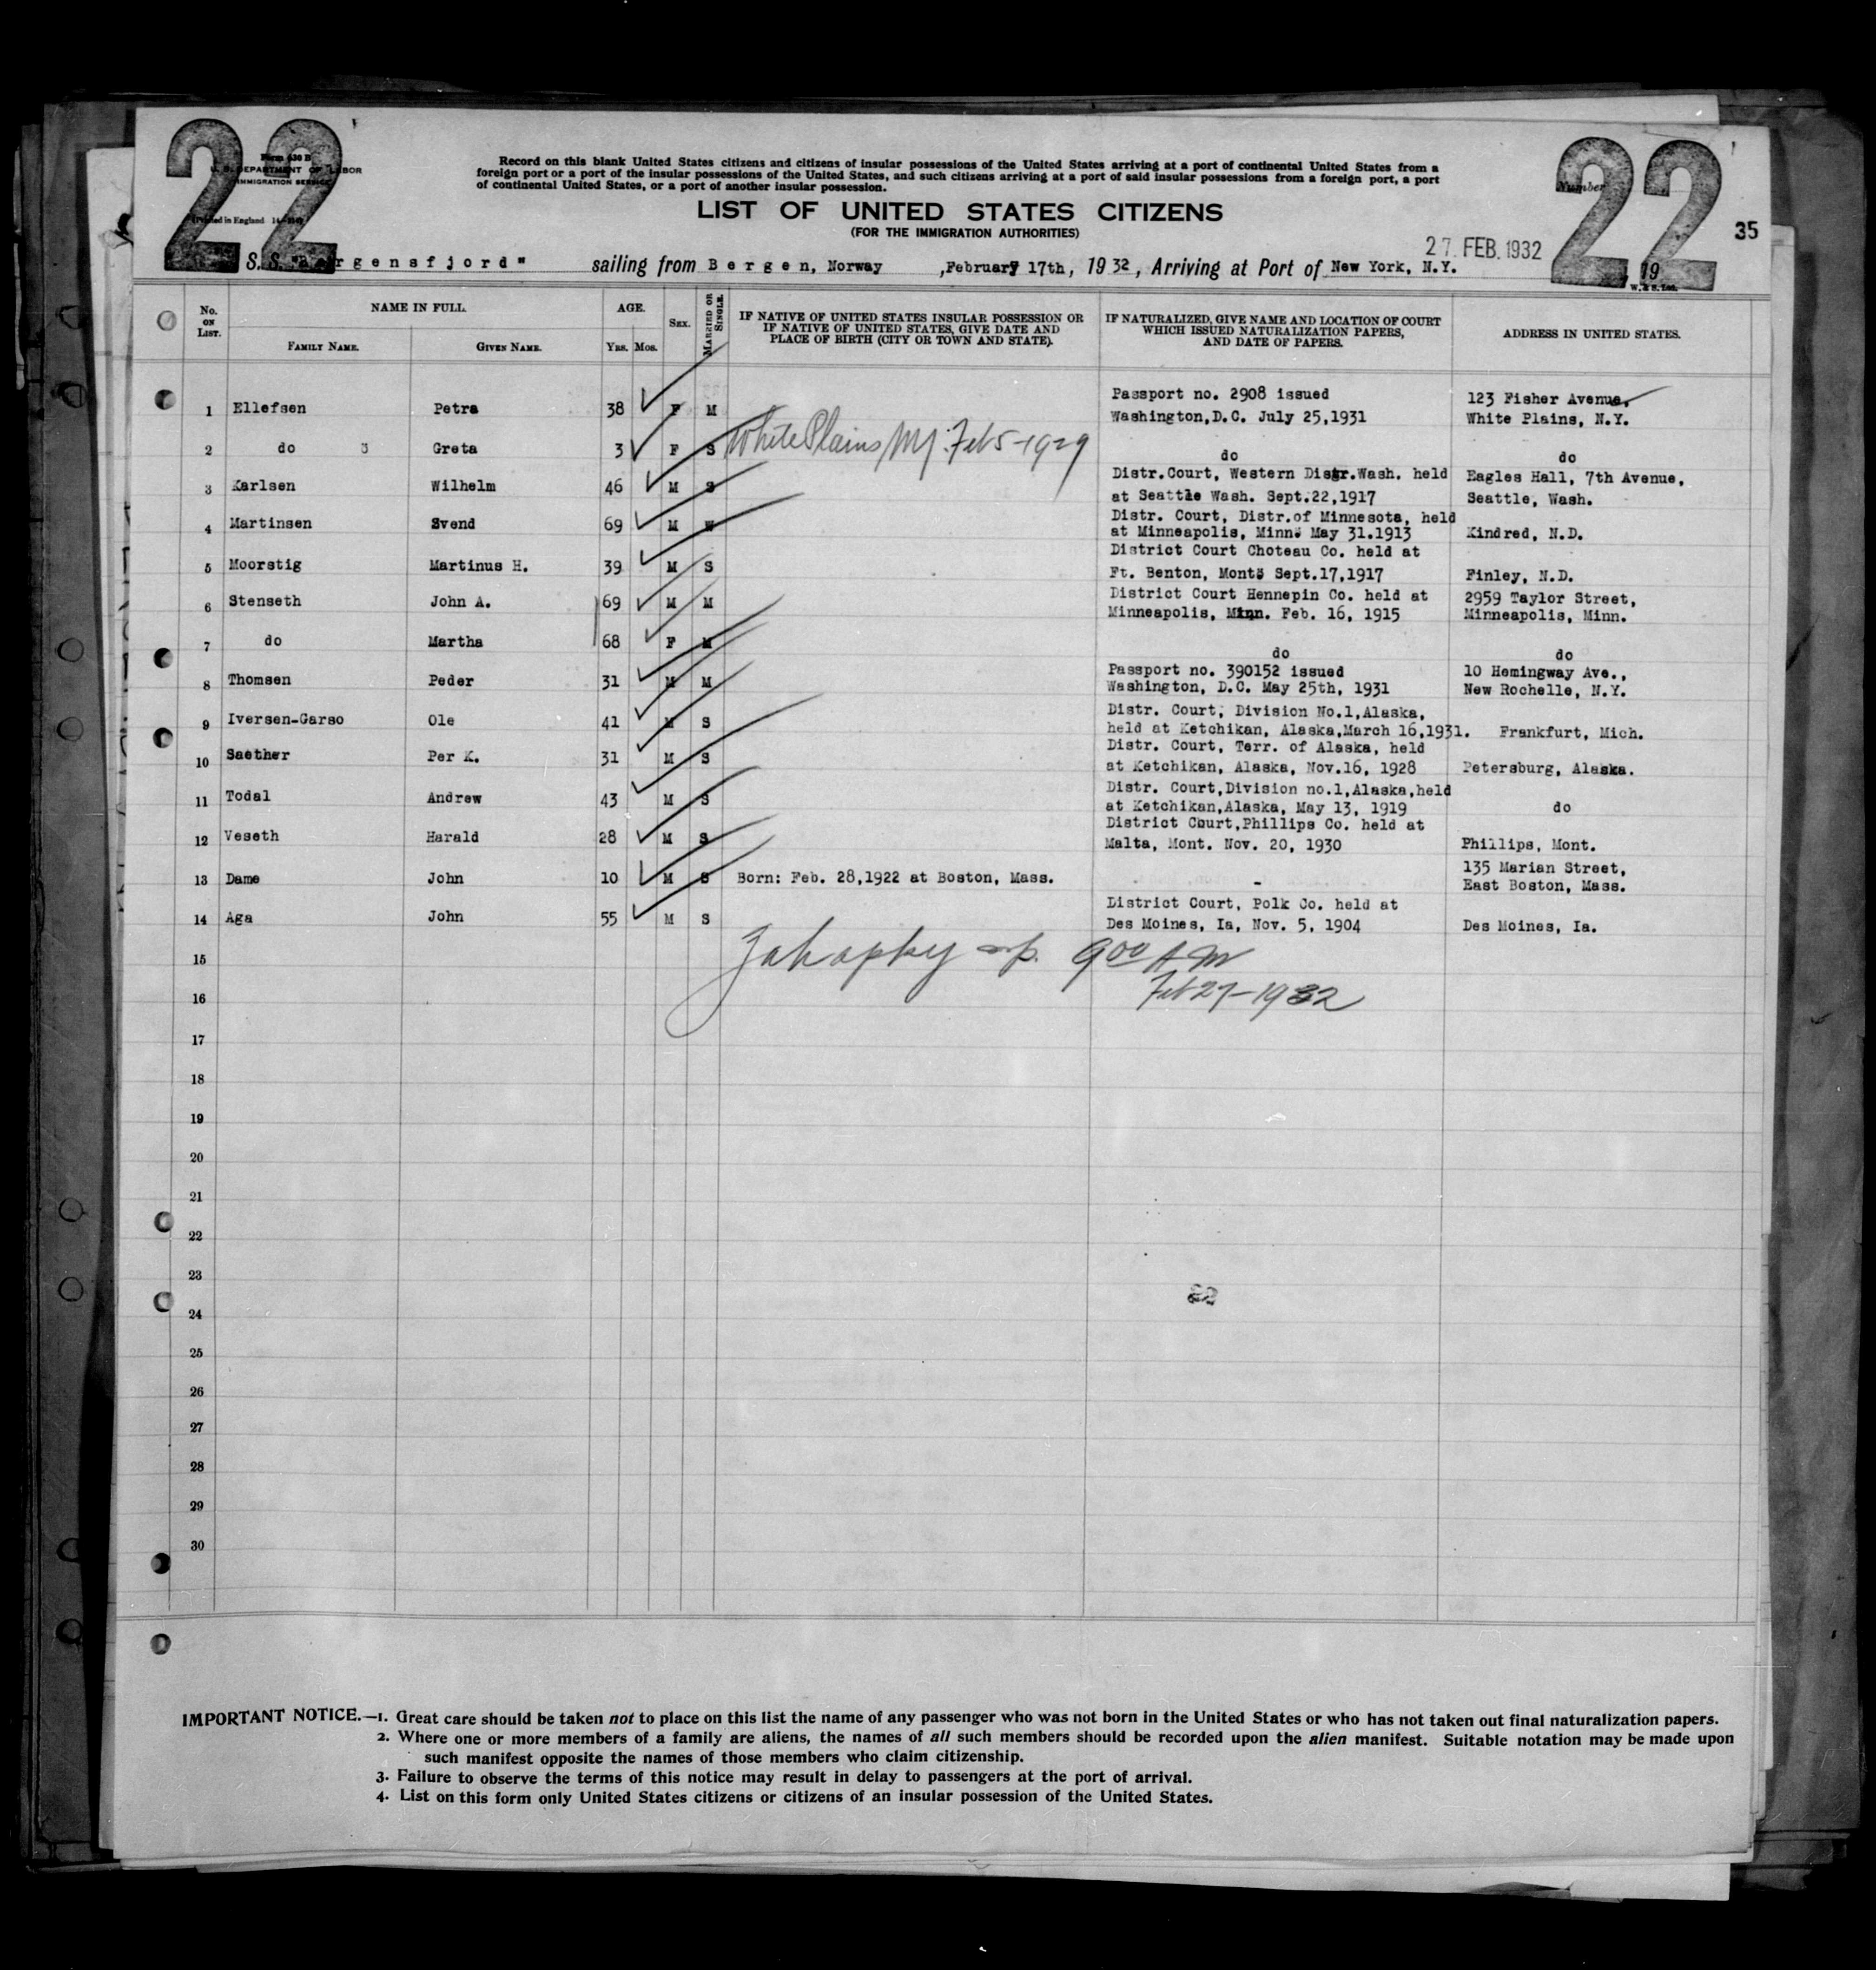 22
22
Form 630 B
U. S. DEPARTMENT OF LABOR
IMMIGRATION SERVICE
Printed in England
Number
35
Record on this blank United States citizens and citizens of insular possessions of the United States arriving at a port of continental United States from a
foreign port or a port of the insular possessions of the United States, and such citizens arriving at a port of said insular possessions from a foreign port, a port
of continental United States, or a port of another insular possession.
LIST OF UNITED STATES CITIZENS
(FOR THE IMMIGRATION AUTHORITIES)
27 FEB. 1932
S. S. "Bergensfjord" sailing from Bergen, Norway, February 17th, 1932, Arriving at Port of New York, N.Y. 19
No. ON LIST.
NAME IN FULL.
FAMILY NAME.
GIVEN NAME.
AGE.
YRS. MOS.
SEX.
MARRIED OR SINGLE.
IF NATIVE OF UNITED STATES INSULAR POSSESSION OR
IF NATIVE OF UNITED STATES, GIVE DATE AND
PLACE OF BIRTH (CITY OR TOWN AND STATE).
IF NATURALIZED, GIVE NAME AND LOCATION OF COURT
WHICH ISSUED NATURALIZATION PAPERS,
AND DATE OF PAPERS.
ADDRESS IN UNITED STATES.
Passport no. 2908 issued 123 Fisher Avenue,
1 Ellefsen Petra 38 F M Washington,D.C. July 25,1931 White Plains, N.Y.
2 do Greta 3 F S White Plains NY. Feb 5-1929 do do
Distr.Court, Western Distr.Wash. held Eagles Hall, 7th Avenue,
3 Karlsen Wilhelm 46 M S at Seattle Wash. Sept.22,1917 Seattle, Wash.
Distr. Court, Distr.of Minnesota, held
4 Martinsen Svend 69 M W at Minneapolis, Minn. May 31.1913 Kindred, N.D.
District Court Choteau Co. held at
5 Moorstig Martinus H. 39 M S Ft. Benton, Mont. Sept.17,1917 Finley, N.D.
District Court Hennepin Co. held at 2959 Taylor Street,
6 Stenseth John A. 69 M M Minneapolis, Minn. Feb. 16, 1915 Minneapolis, Minn.
7 do Martha 68 F M do do
Passport no. 390152 issued 10 Hemingway Ave.,
8 Thomsen Peder 31 M M Washington, D.C. May 25th, 1931 New Rochelle, N.Y.
Distr. Court, Division No.1,Alaska,
9 Iversen-Garso Ole 41 M S held at Ketchikan, Alaska,March 16,1931. Frankfurt, Mich.
Distr. Court, Terr. of Alaska, held
10 Saether Per K. 31 M S at Ketchikan, Alaska, Nov.16, 1928 Petersburg, Alaska.
Distr. Court,Division no.1,Alaska,held
11 Todal Andrew 43 M S at Ketchikan,Alaska, May 13, 1919 do
District Court,Phillips Co. held at
12 Veseth Harald 28 M S Malta, Mont. Nov. 20, 1930 Phillips, Mont.
135 Marian Street,
13 Dame John 10 M S Born: Feb. 28,1922 at Boston, Mass. - East Boston, Mass.
District Court, Polk Co. held at
14 Aga John 55 M S Des Moines, Ia, Nov. 5, 1904 Des Moines, Ia.
15 9 00 A M
16 Feb 27-1932
17
18
19
20
21
22
23
24
25
26
27
28
29
30
IMPORTANT NOTICE.—1. Great care should be taken not to place on this list the name of any passenger who was not born in the United States or who has not taken out final naturalization papers.
2. Where one or more members of a family are aliens, the names of all such members should be recorded upon the alien manifest. Suitable notation may be made upon
such manifest opposite the names of those members who claim citizenship.
3. Failure to observe the terms of this notice may result in delay to passengers at the port of arrival.
4. List on this form only United States citizens or citizens of an insular possession of the United States.